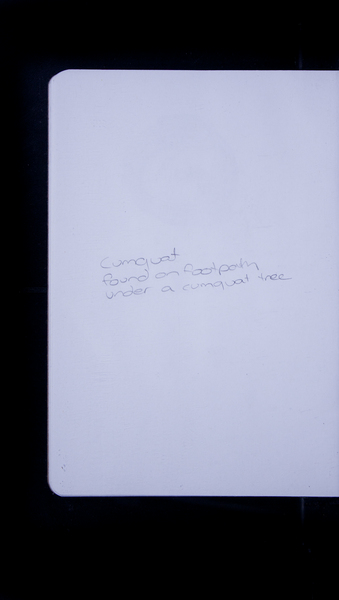 Cumquat
found on footpath
under a cumquat tree